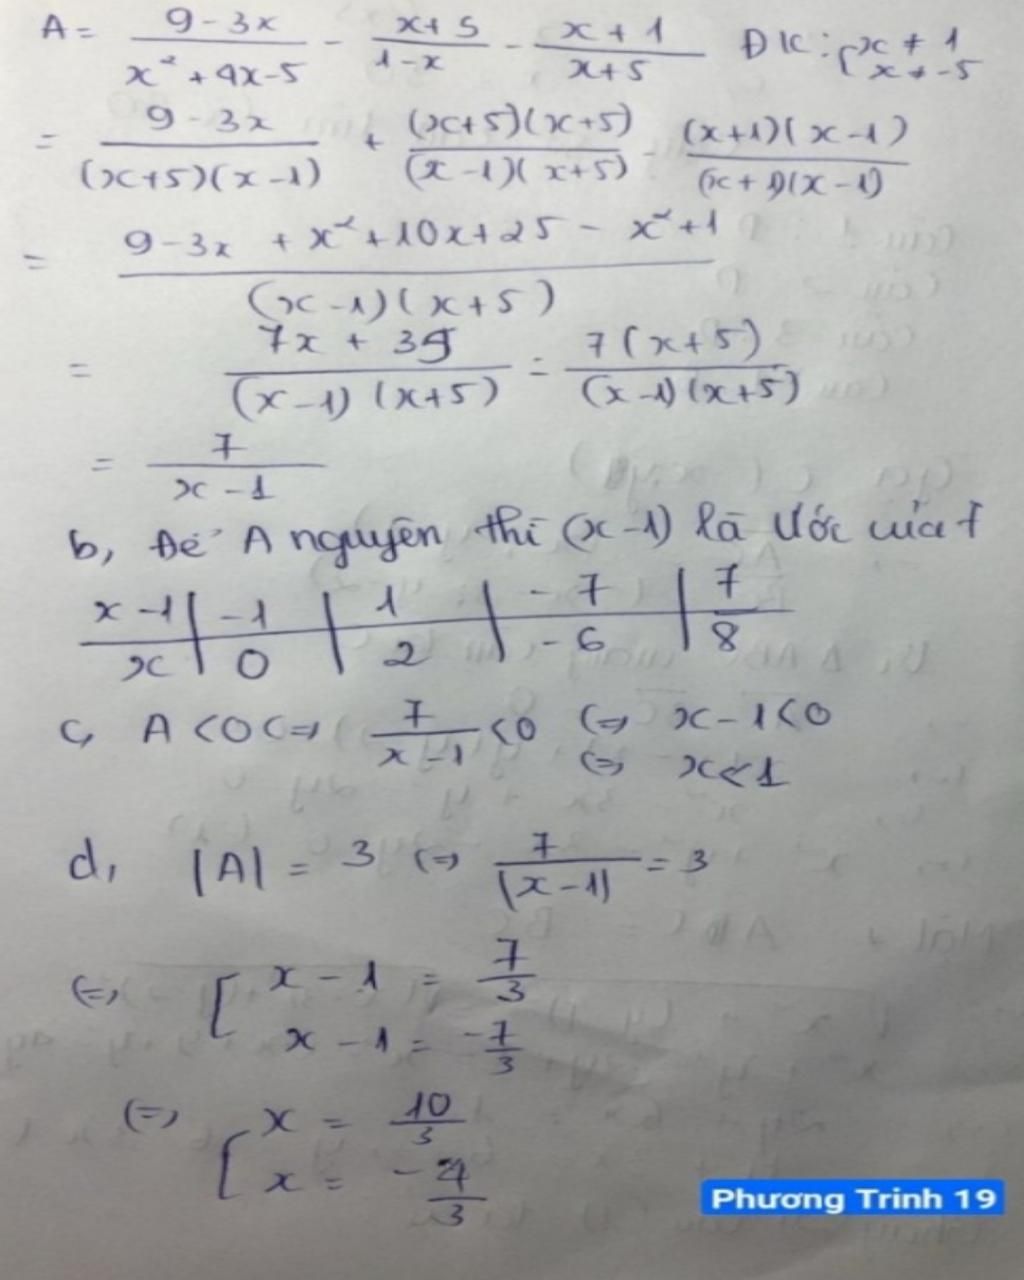 A = (9 - 3x)/(x² + 4x - 5) - (x + 5)/(1 - x) - (x + 1)/(x + 5) ĐK: { x ≠ 1
x ≠ -5
= (9 - 3x)/((x+5)(x-1)) + ((x+5)(x+5))/((x-1)(x+5)) - ((x+1)(x-1))/((x+1)(x-1))
= (9 - 3x + x² + 10x + 25 - x² + 1)/((x-1)(x+5))
= (7x + 35)/((x-1)(x+5)) = 7(x+5)/((x-1)(x+5))
= 7/(x - 1)
b, Để A nguyên thì (x-1) là Ước của 7
x - 1 | -1 | 1 | -7 | 7
x | 0 | 2 | -6 | 8
c, A < 0 <=> 7/(x - 1) < 0 <=> x - 1 < 0
<=> x < 1
d, |A| = 3 <=> 7/|x - 1| = 3
<=> [ x - 1 = 7/3
x - 1 = -7/3
<=> [ x = 10/3
x = -4/3
Phương Trinh 19